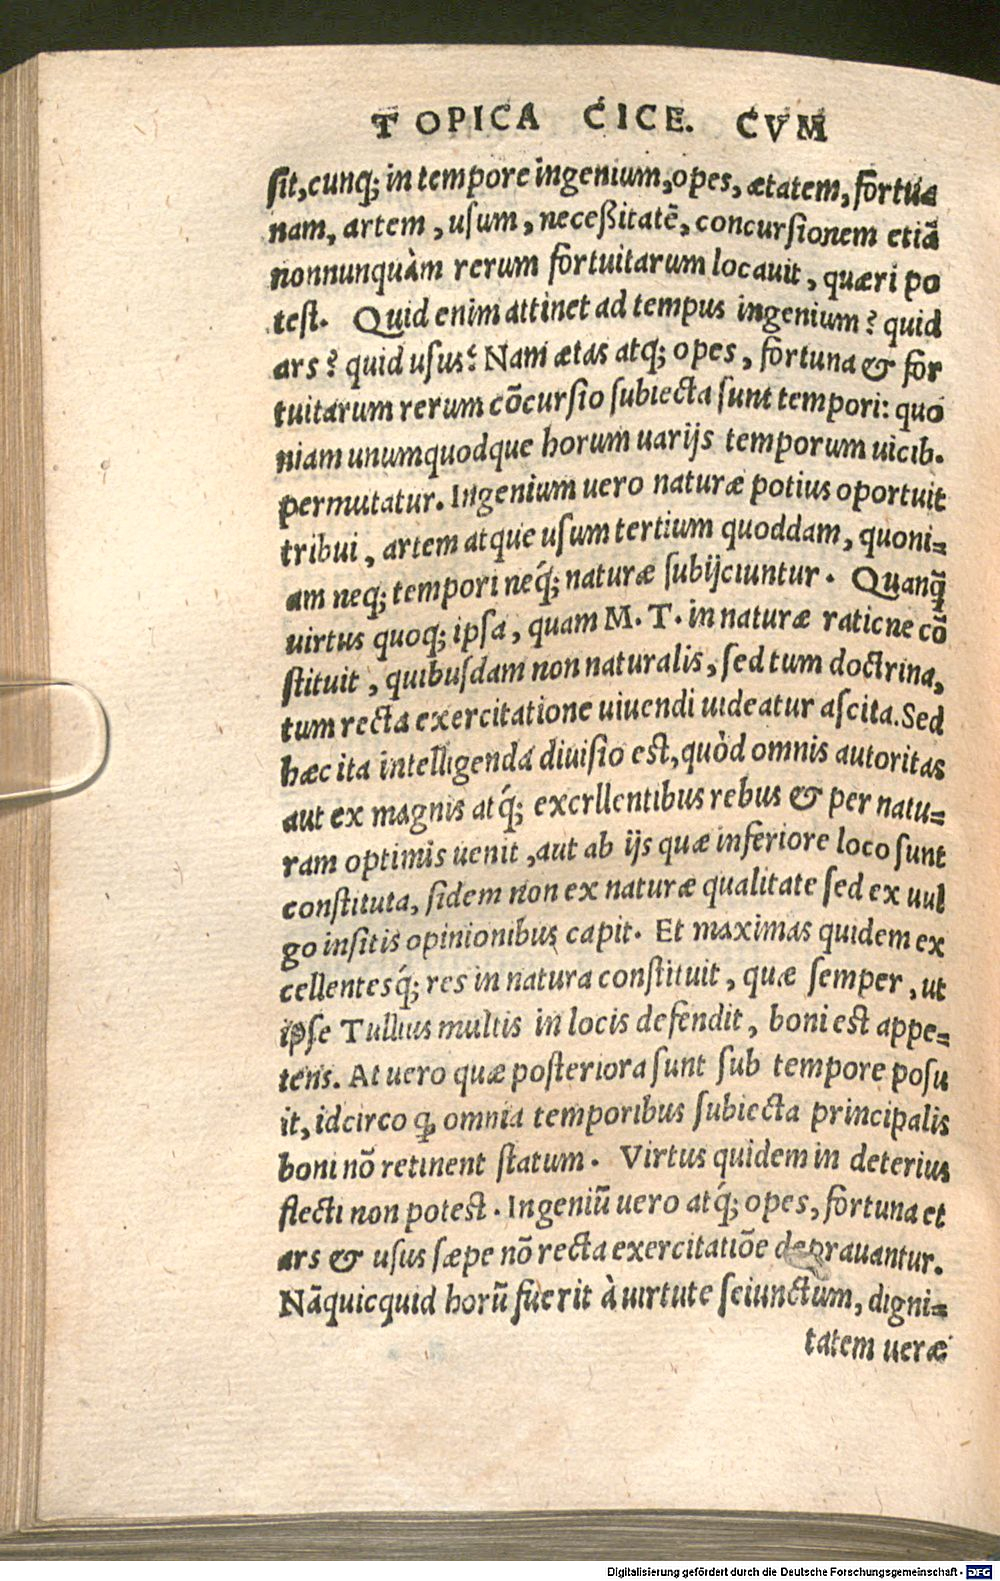 TOPICA CICE. CVM
sit, cunq; in tempore ingenium, opes, ætatem, fortu=
nam, artem, usum, neceßitatẽ, concursionem etiã
nonnunquàm rerum fortuitarum locauit, quæri po
test. Quid enim attinet ad tempus ingenium? quid
ars? quid usus? Nam ætas atq; opes, fortuna & for
tuitarum rerum cõcursio subiecta sunt tempori: quo
niam unumquodque horum uarijs temporum uicib.
permutatur. Ingenium uero naturæ potius oportuit
tribui, artem atque usum tertium quoddam, quoni=
am neq; tempori neq́; naturæ subijciuntur. Quanq̃
uirtus quoq; ipsa, quam M. T. in naturæ ratione cõ
stituit, quibusdam non naturalis, sed tum doctrina,
tum recta exercitatione uiuendi uideatur ascita. Sed
hæc ita intelligenda diuisio est, quòd omnis autoritas
aut ex magnis atq́; excrllentibus rebus & per natu=
ram optimis uenit, aut ab ijs quæ inferiore loco sunt
constituta, sidem non ex naturæ qualitate sed ex uul
go insitis opinionibus capit. Et maximas quidem ex
cellentesq́; res in natura constituit, quæ semper, ut
ipse Tullius multis in locis defendit, boni est appe=
tens. At uero quæ posteriora sunt sub tempore posu
it, idcirco ꝙ omnia temporibus subiecta principalis
boni nõ retinent statum. Virtus quidem in deterius
flecti non potest. Ingeniũ uero atq́; opes, fortuna et
ars & usus sæpe nõ recta exercitatiõe deprauantur.
Nã quicquid horũ fuerit à uirtute seiunctum, digni=
tatem ueræ
Digitalisierung gefördert durch die Deutsche Forschungsgemeinschaft - DFG